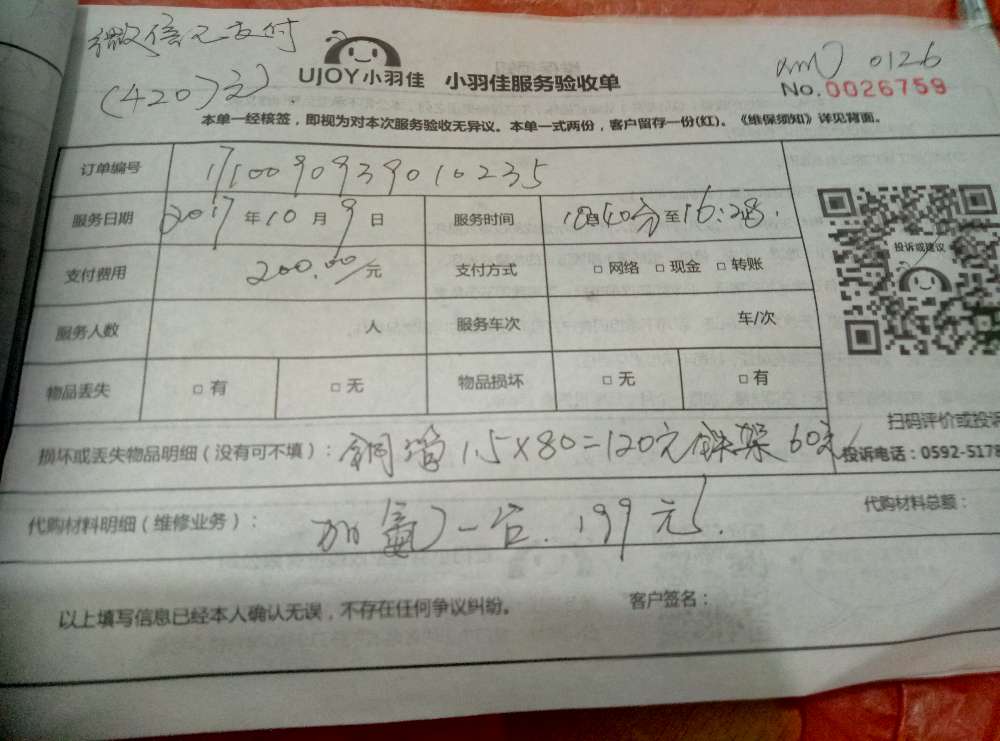 微信已支付
(420)元
UJOY小羽佳 小羽佳服务验收单
0126
No.0026759
本单一经核签，即视为对本次服务验收无异议。本单一式两份，客户留存一份(红)。《维保须知》详见背面。
订单编号 1710090939010235
服务日期 2017 年 10 月 9 日 服务时间 40分至16:28.
支付费用 200.00/元 支付方式 □ 网络 □ 现金 □ 转账
投诉或建议
服务人数 人 服务车次 车/次
物品丢失 □ 有 □ 无 物品损坏 □ 无 □ 有
扫码评价或投诉
损坏或丢失物品明细（没有可不填）： 铜管 1.5×80=120元 铁架 60元
投诉电话：0592-5178
代购材料明细（维修业务）： 加氟 一台. 199元.
代购材料总额：
以上填写信息已经本人确认无误，不存在任何争议纠纷。 客户签名：